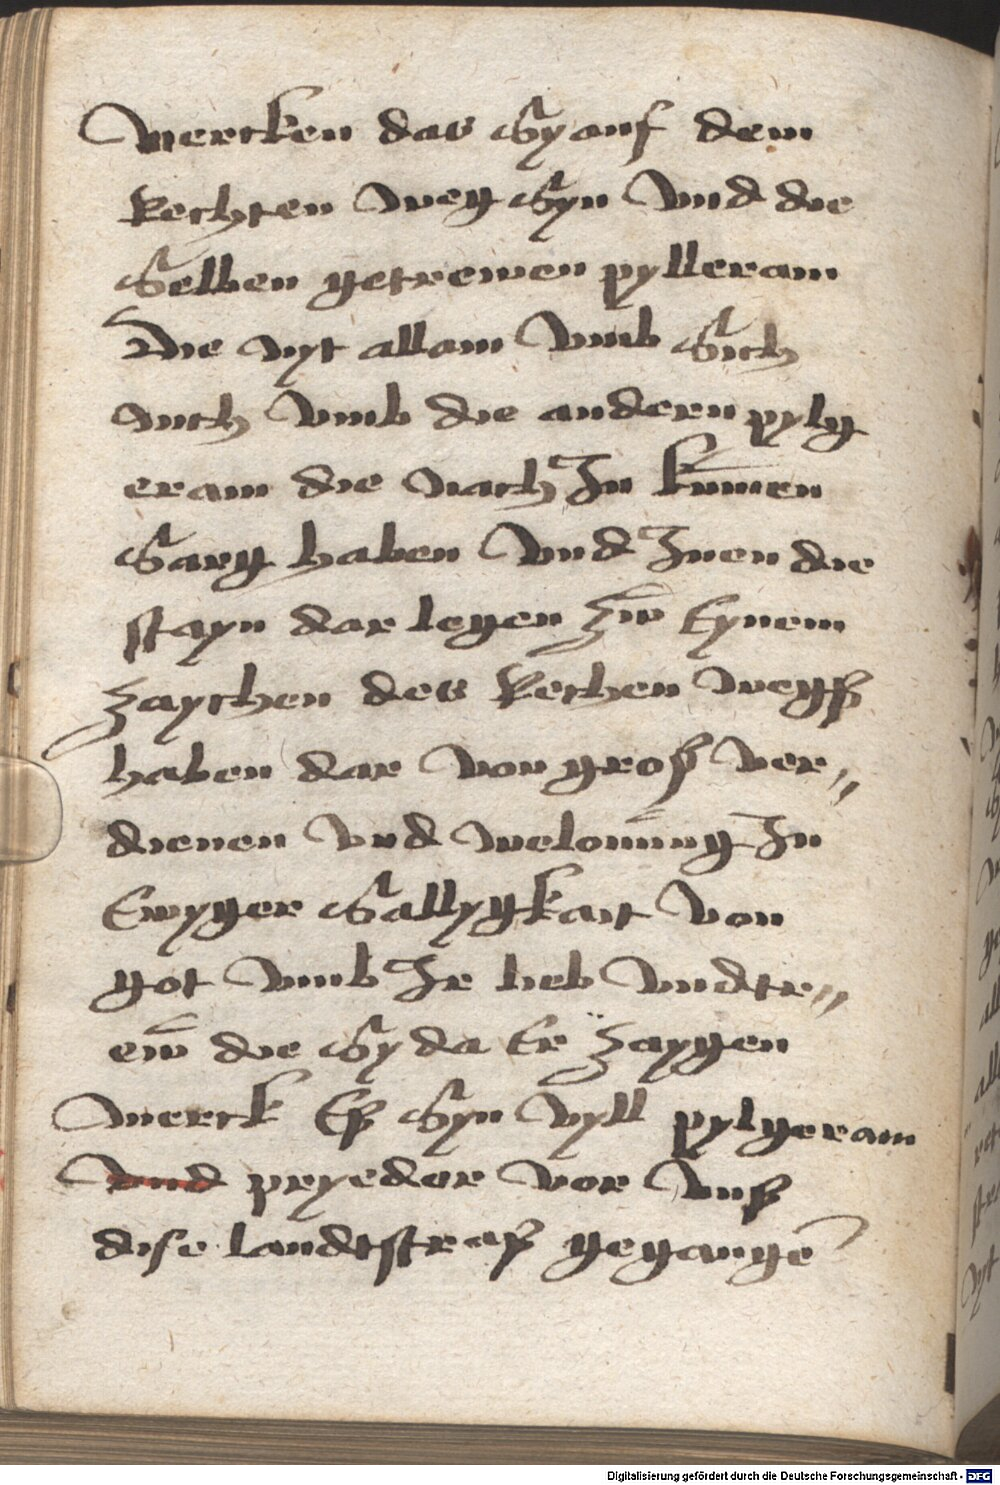 mercken das Sy auf dem
Rechten weg Syn Vnd die
Selben getrewen pylleram
Die nyt allain Vmb Sich
Auch Vmb die andern pylg
eram die nach In kumen
Sarg haben Vnd Inen die
stayn dar legen zw Eynem
zaychen des Rechen wegß
haben dar von groß ver„
dienen Vnd welonūng In
Ewyger Sallygkait Von
got Vmb Ir lieb Vnd tr„
ew die Sy da Er zaygen
merck Eß Syn Vyll pylgeram
Vnd pryeder vor Vnß
dise landtstraß gegangē
Digitalisierung gefördert durch die Deutsche Forschungsgemeinschaft - DFG